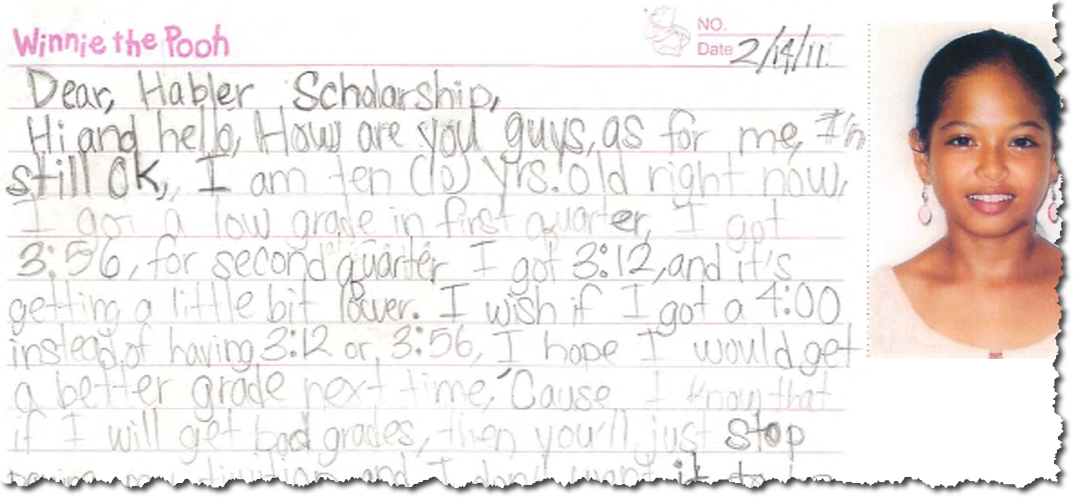 Winnie the Pooh
NO.
Date 2/14/11
Dear, Habler Scholarship,
Hi and hello, How are you guys, as for me, I'm
still ok, I am ten (10) yrs. old right now,
I got a low grade in first quarter, I got
3:56, for second quarter I got 3:12, and it's
getting a little bit lower. I wish if I got a 4:00
instead of having 3:12 or 3:56, I hope I would get
a better grade next time, 'Cause I know that
if I will get bad grades, then you'll just stop
and I don't want it to